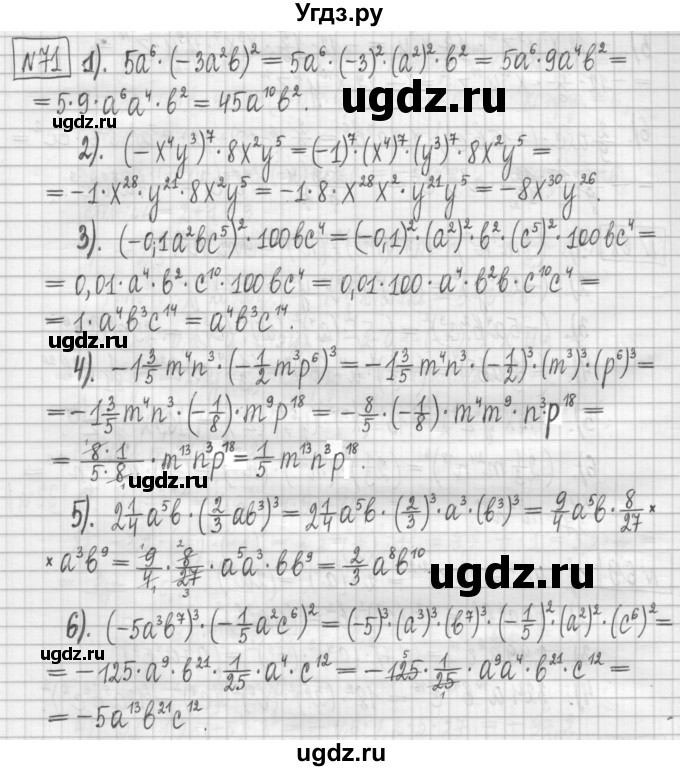 Угдз.ру
№71 1). 5a⁶·(−3a²b)² = 5a⁶·(−3)²·(a²)²·b² = 5a⁶·9a⁴b² =
= 5·9·a⁶a⁴·b² = 45a¹⁰b².
ugdz.ru
ugdz.ru
2). (−x⁴y³)⁷·8x²y⁵ = (−1)⁷·(x⁴)⁷·(y³)⁷·8x²y⁵ =
= −1·x²⁸·y²¹·8x²y⁵ = −1·8·x²⁸x²·y²¹y⁵ = −8x³⁰y²⁶.
3). (−0,1a²bc⁵)²·100bc⁴ = (−0,1)²·(a²)²·b²·(c⁵)²·100bc⁴ =
= 0,01·a⁴·b²·c¹⁰·100bc⁴ = 0,01·100·a⁴·b²b·c¹⁰c⁴ =
= 1·a⁴b³c¹⁴ = a⁴b³c¹⁴.
ugdz.ru
ugdz.ru
4). −1 3/5 m⁴n³·(−1/2 m³p⁶)³ = −1 3/5 m⁴n³·(−1/2)³·(m³)³·(p⁶)³ =
= −1 3/5 m⁴n³·(−1/8)·m⁹p¹⁸ = −8/5·(−1/8)·m⁴m⁹·n³·p¹⁸ =
= 8·1/5·8·m¹³n³p¹⁸ = 1/5 m¹³n³p¹⁸.
ugdz.ru
5). 2 1/4 a⁵b·(2/3 ab³)³ = 2 1/4 a⁵b·(2/3)³·a³·(b³)³ = 9/4 a⁵b·8/27 ×
× a³b⁹ = 9/4·8/27·a⁵a³·bb⁹ = 2/3 a⁸b¹⁰
ugdz.ru
6). (−5a³b⁷)³·(−1/5 a²c⁶)² = (−5)³·(a³)³·(b⁷)³·(−1/5)²·(a²)²·(c⁶)² =
ugdz.ru
= −125·a⁹·b²¹·1/25·a⁴·c¹² = −125·1/25·a⁹a⁴·b²¹·c¹² =
= −5a¹³b²¹c¹².
ugdz.ru
ugdz.ru